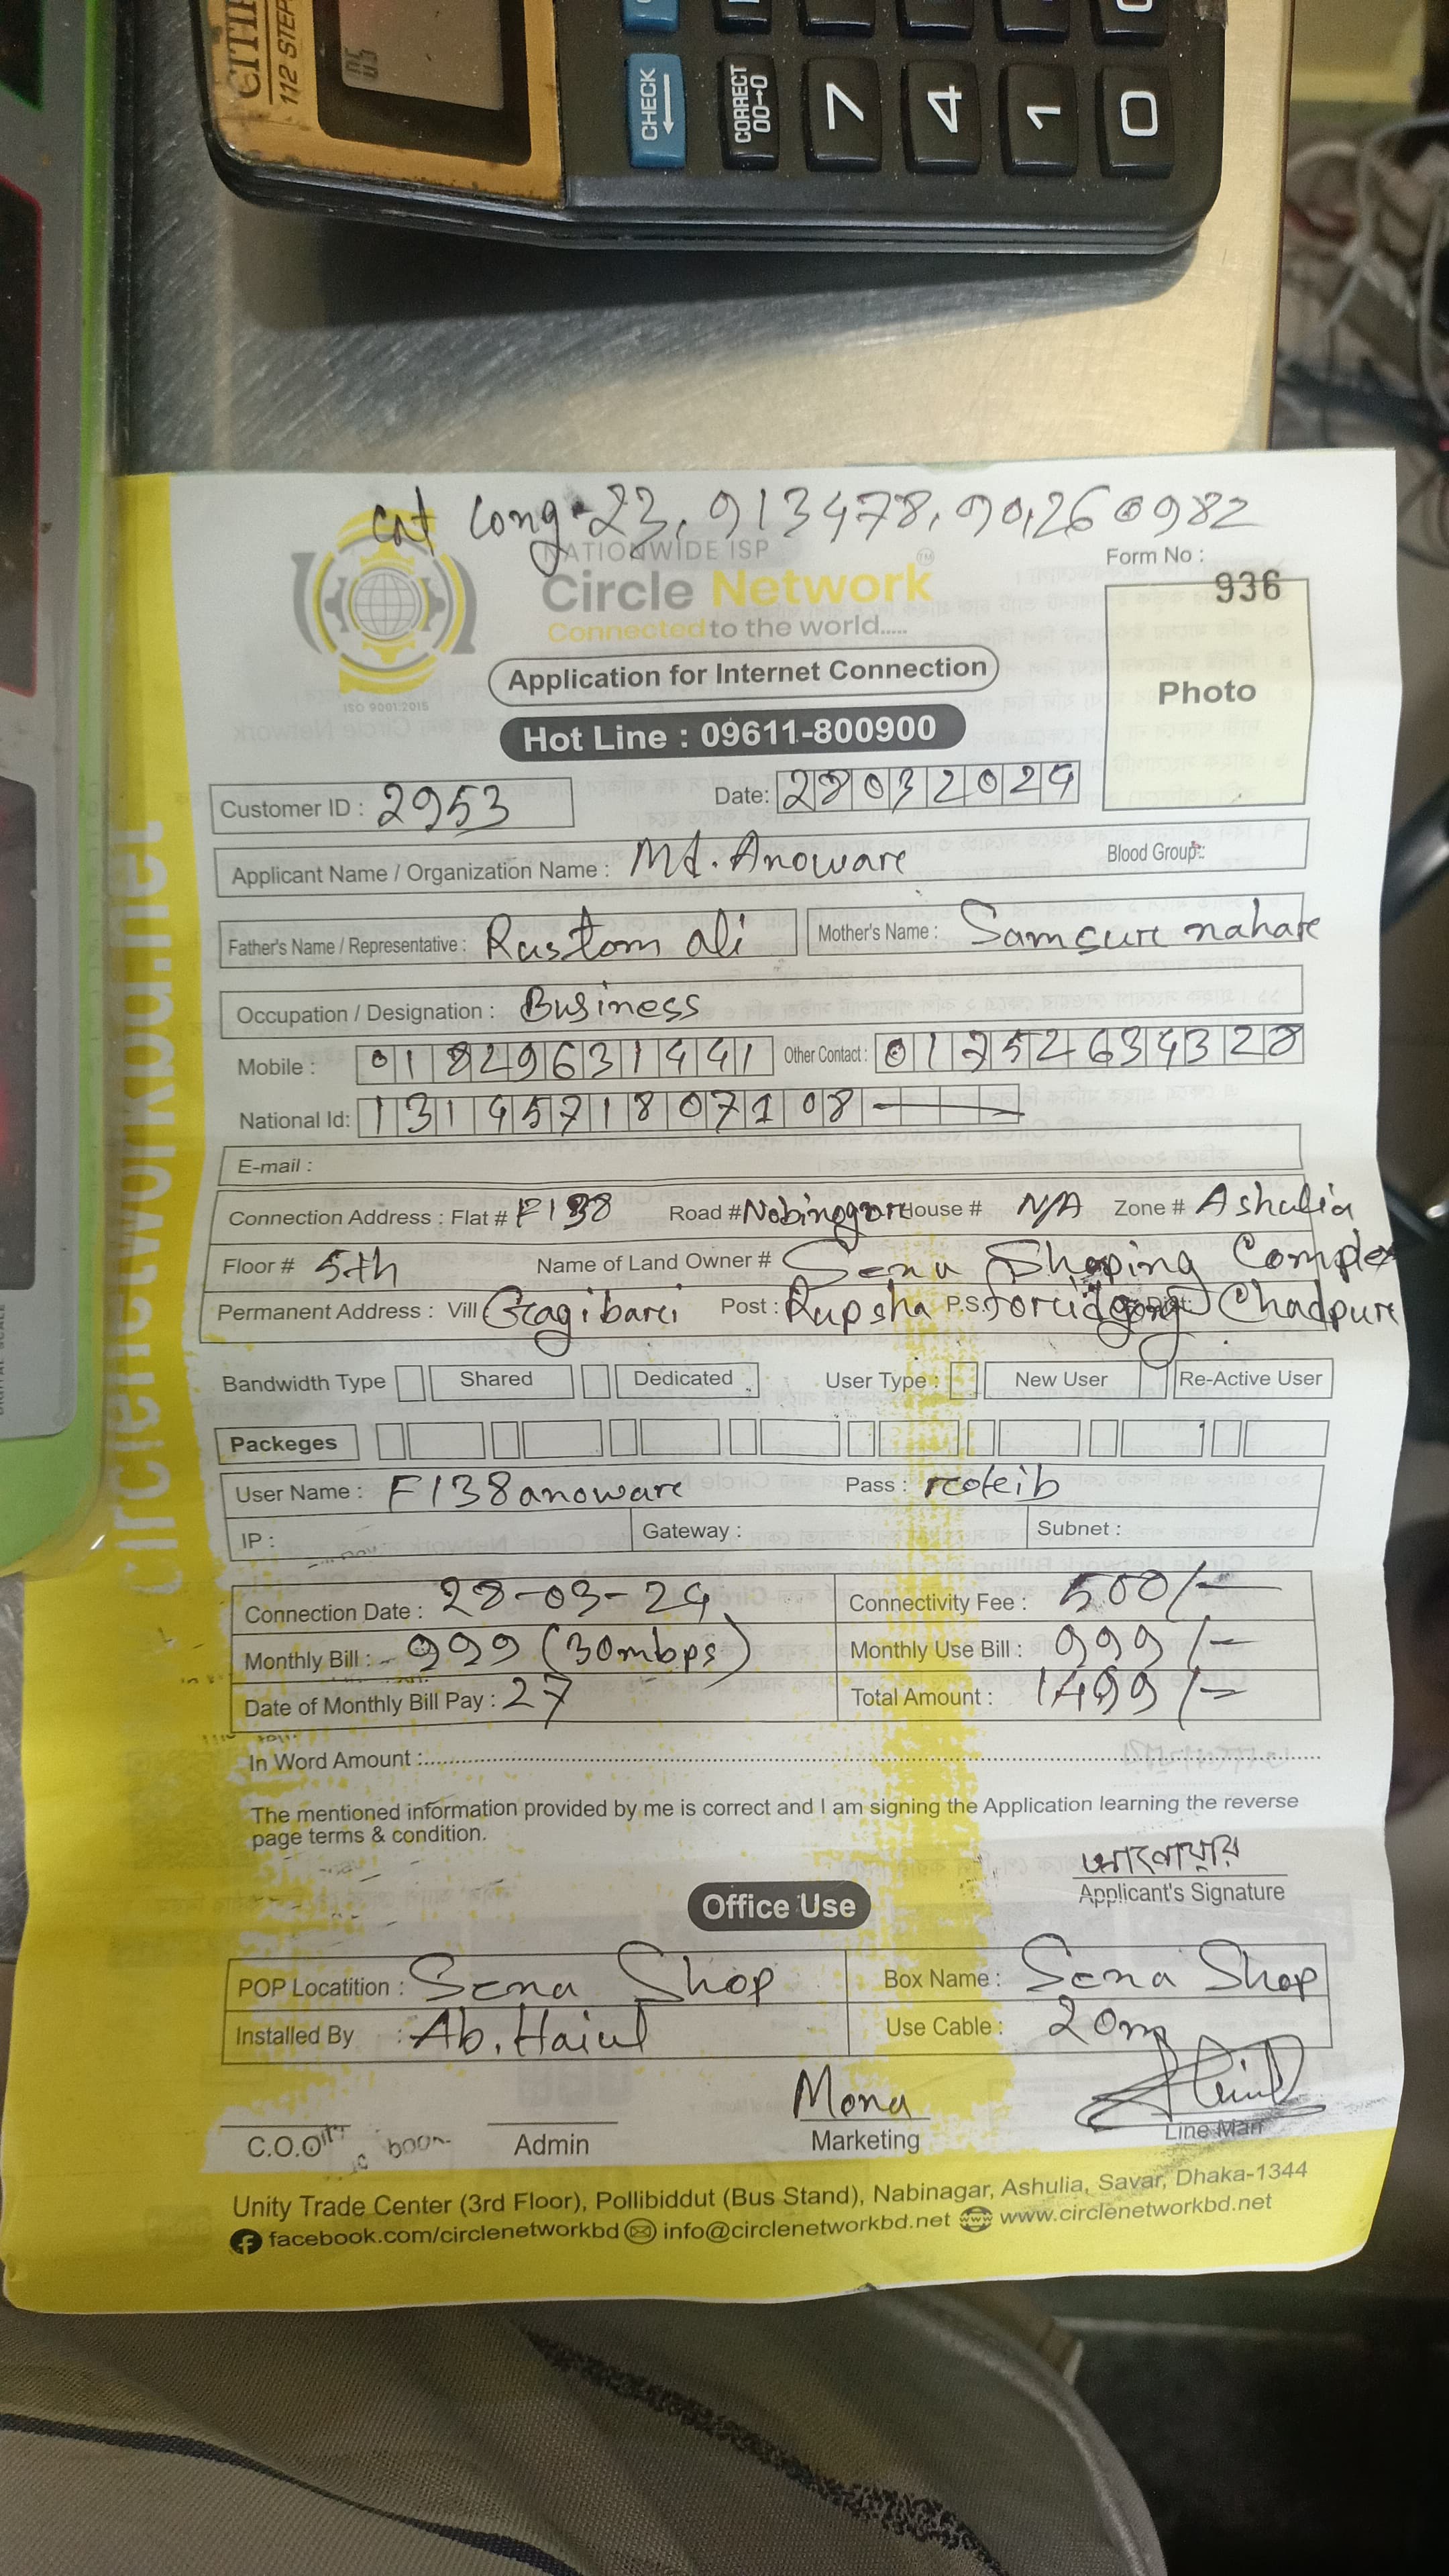 CITIZ
112 STEPS
CHECK
CORRECT
00→0
7
4
1
0
cat Long-23.913478,90,260982
NATIONWIDE ISP
Circle Network
TM
Connected to the world.....
ISO 9001:2015
Form No :
936
Photo
Application for Internet Connection
Hot Line : 09611-800900
circlenetworkbd.net
Customer ID : 2953
Date: 28032024
Applicant Name / Organization Name : Md. Anoware
Blood Group:
Father's Name / Representative : Rustom ali
Mother's Name : Samsure nahare
Occupation / Designation : Business
Mobile : 01829631441
Other Contact :
National Id: 1314571807108
E-mail :
Connection Address : Flat # F138 Road # Nobinogore House # N/A Zone # Ashulia
Floor # 5th Name of Land Owner # Sena Shoping Complex
Permanent Address : Vill Post : Rupsha P.S. Chadpure
Bandwidth Type Shared Dedicated User Type : New User Re-Active User
Packeges
User Name : F138anoware Pass :
IP : Gateway : Subnet :
Connection Date : 28-03-24 Connectivity Fee : 500/-
Monthly Bill : 999 (30mbps) Monthly Use Bill : 999/-
Date of Monthly Bill Pay : 27 Total Amount : 1499/-
In Word Amount :
The mentioned information provided by me is correct and I am signing the Application learning the reverse
page terms & condition.
আনোয়ার
Applicant's Signature
Office Use
POP Locatition : Sena Shop Box Name : Sena Shop
Installed By : Ab. Haiul Use Cable : 20m
Mona
C.O.O Admin Marketing Line Man
Unity Trade Center (3rd Floor), Pollibiddut (Bus Stand), Nabinagar, Ashulia, Savar, Dhaka-1344
facebook.com/circlenetworkbd info@circlenetworkbd.net www.circlenetworkbd.net